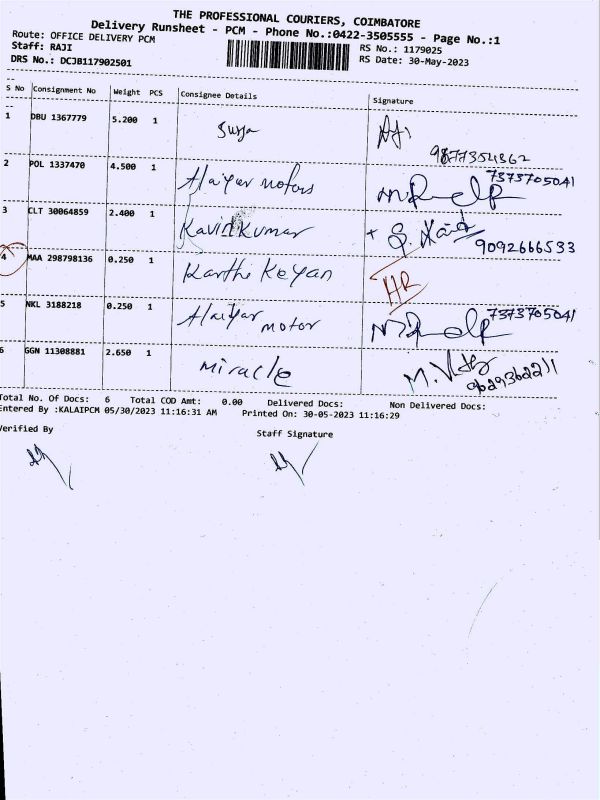 THE PROFESSIONAL COURIERS, COIMBATORE
Delivery Runsheet - PCM - Phone No.:0422-3505555 - Page No.:1
Route: OFFICE DELIVERY PCM RS No.: 1179025
Staff: RAJI RS Date: 30-May-2023
DRS No.: DCJB117902501
S No Consignment No Weight PCS Consignee Details Signature
1 DBU 1367779 5.200 1 Surya
9877354862
2 POL 1337470 4.500 1 Alaiyar motors 7373705041
3 CLT 30064859 2.400 1 Kavin Kumar 9092666533
4 MAA 298798136 0.250 1 Karthe Keyan HR
5 NKL 3188218 0.250 1 Alaiyar motor 7373705041
6 GGN 11308881 2.650 1 miracle
Total No. Of Docs: 6 Total COD Amt: 0.00 Delivered Docs: Non Delivered Docs:
Entered By :KALAIPCM 05/30/2023 11:16:31 AM Printed On: 30-05-2023 11:16:29
Verified By Staff Signature